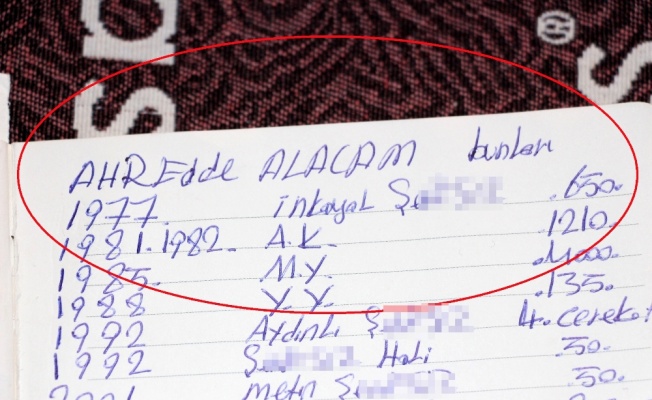 AHREdde ALACAM bunları
1977 inkayal Şe 650.
1981.1982. A.K. 1210.
1985. M.Y. .4000.
1988 Y.Y. .135.
1992 Aydınlı Ş 4.cereket
1992 Ş Hali 50.
metn Ş 50